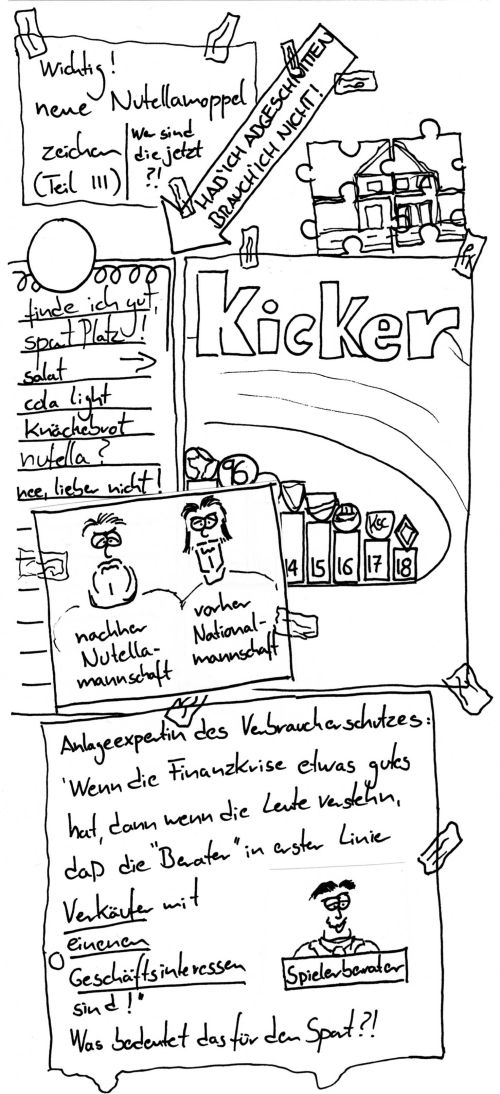 Wichtig!
neue Nutellamoppel
zeichen
(Teil III)
Wer sind
die jetzt
?!
HAB'ICH ADGESCHNITTEN
BRAUCH ICH NICHT!
finde ich gut,
spart Platz!
salat
cola light
Knächebrot
nutella?
nee, lieber nicht!
Kicker
96
14 15 16 17 18
KSC
nachher
Nutella-
mannschaft
vorher
National-
mannschaft
Anlageexpertin des Verbraucherschutzes:
"Wenn die Finanzkrise etwas gutes
hat, dann wenn die Leute verstehn,
daß die "Berater" in erster Linie
Verkäufer mit
einenen
Geschäftsinteressen
sind!"
Spielerberater
Was bedeutet das für den Sport?!